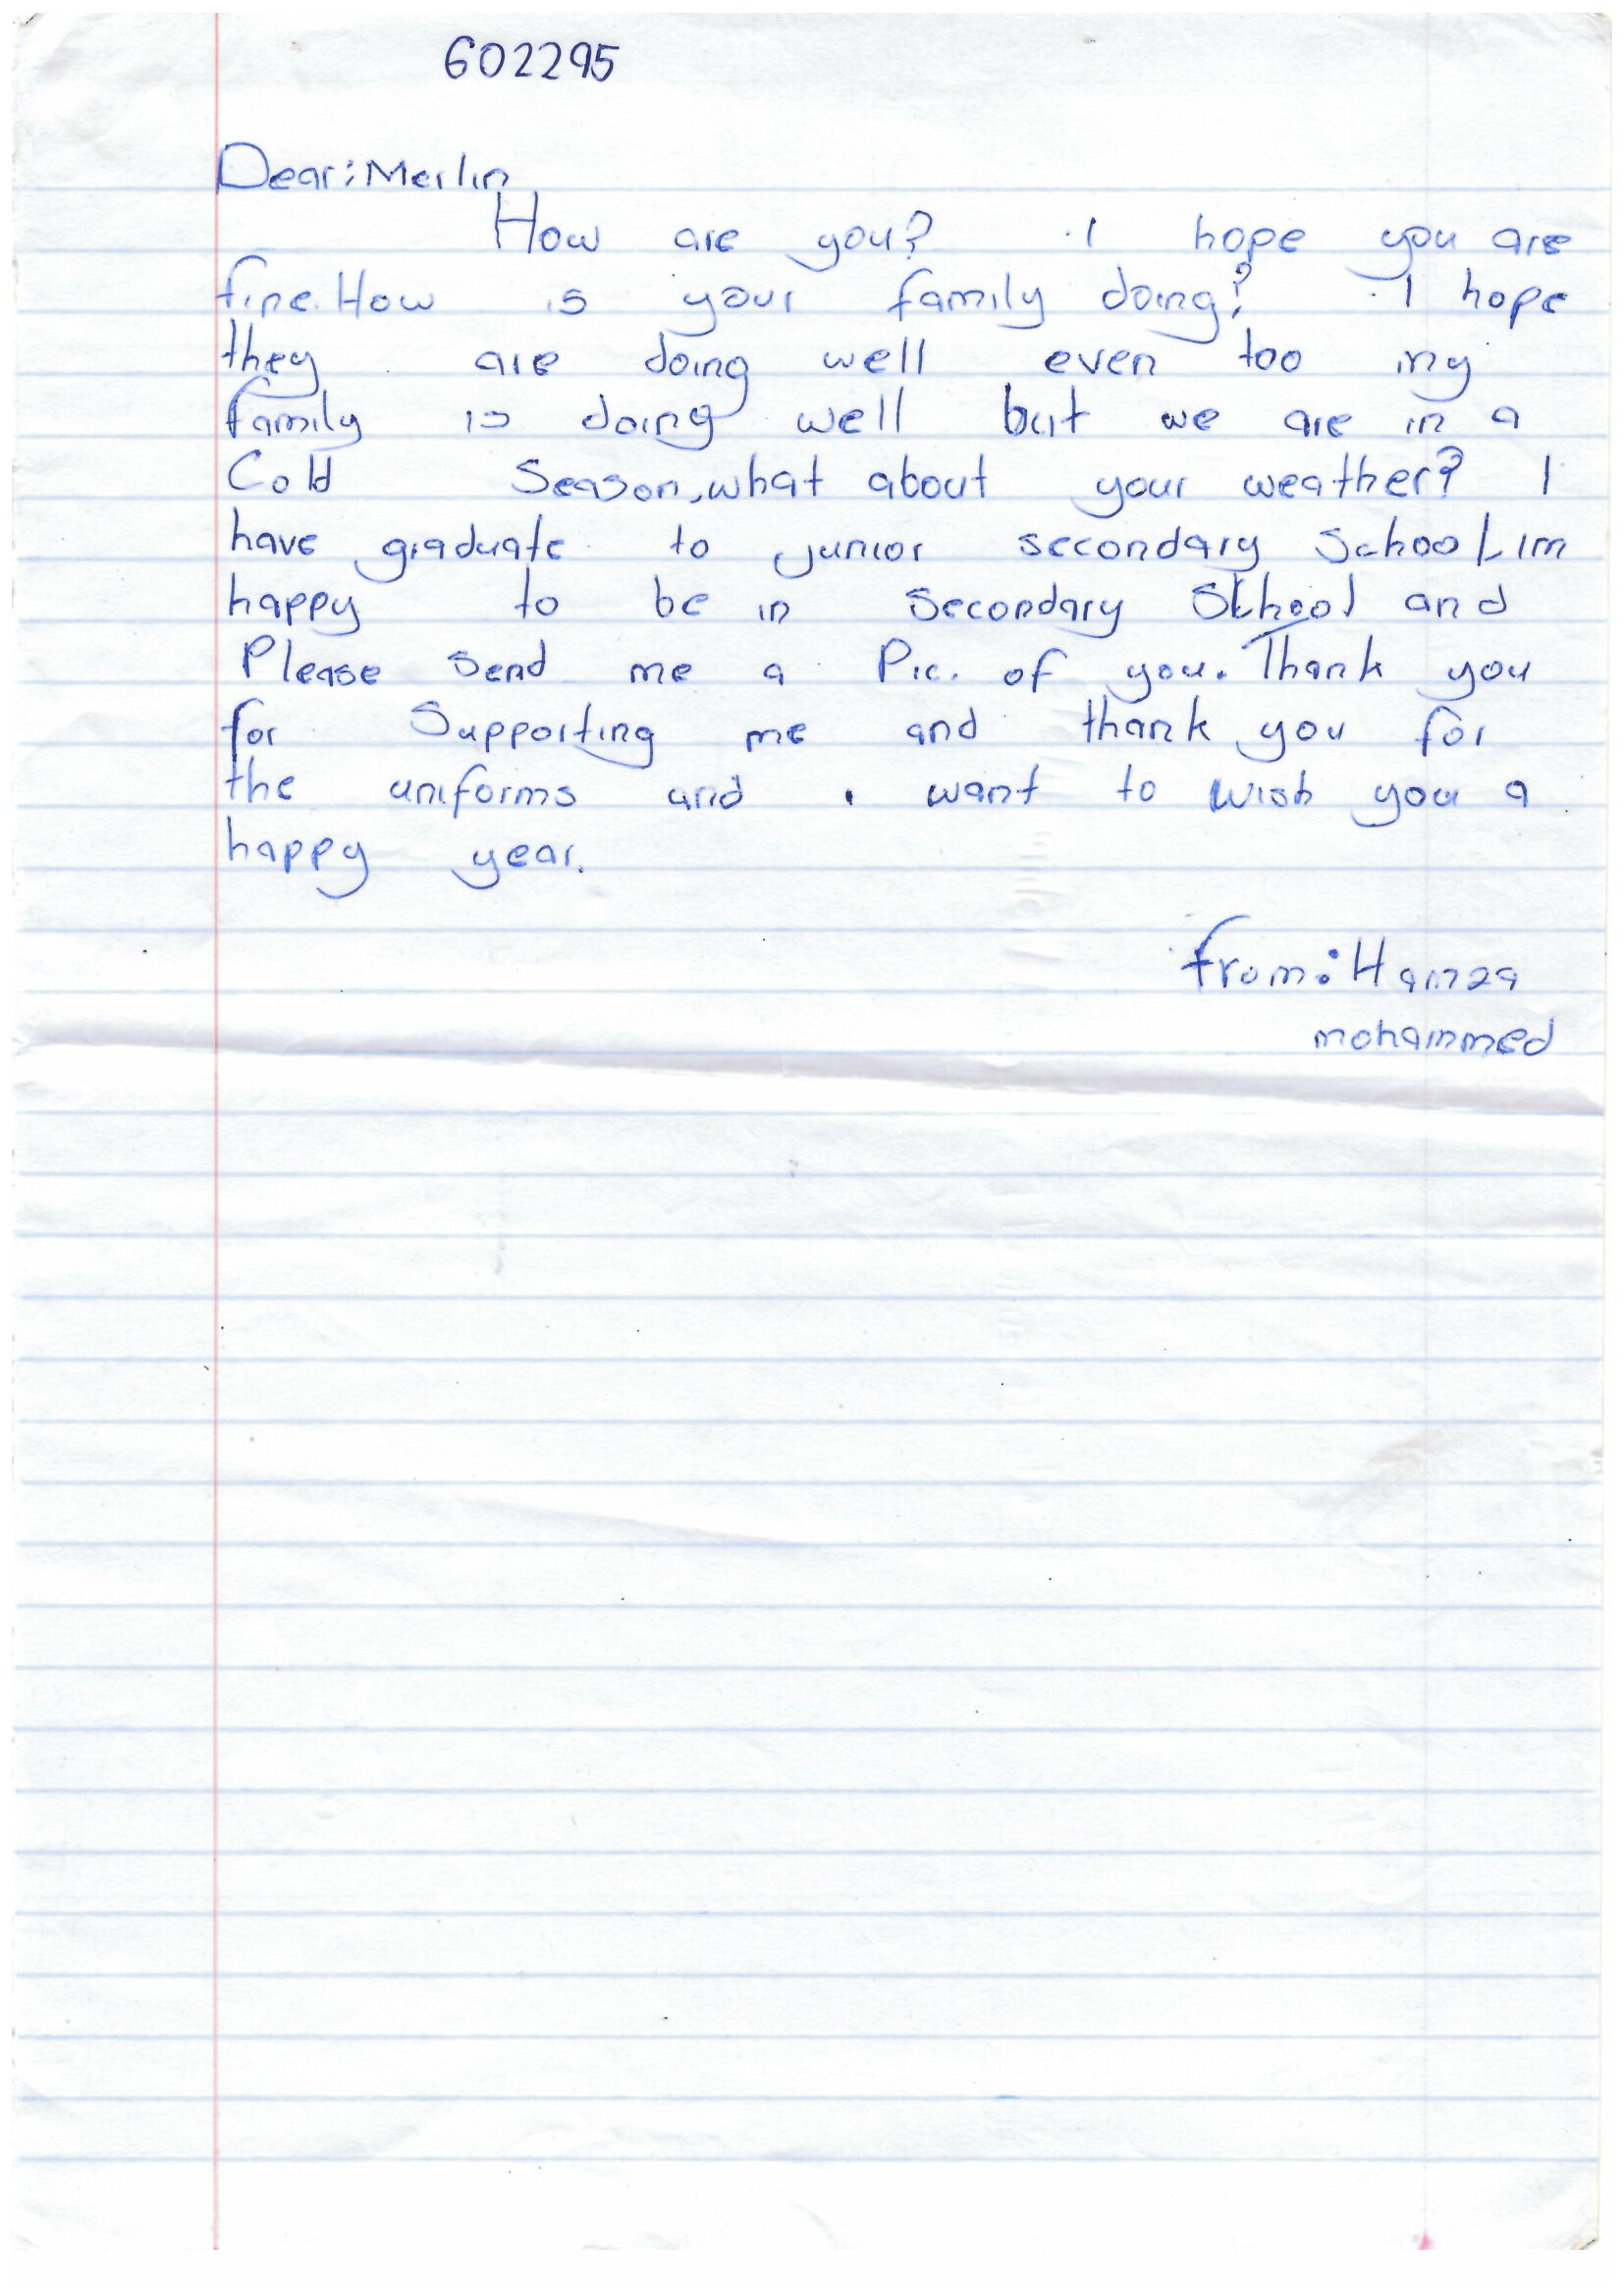 602295
Dear: Merlin
How are you? I hope you are
fine. How is your family doing? I hope
they are doing well even too my
family is doing well but we are in a
Cold Season, what about your weather? I
have graduate to junior secondary School, im
happy to be in secondary School and
Please send me a Pic. of you. Thank you
for Supporting me and thank you for
the uniforms and i want to wish you a
happy year.
from: Hamza
mohammed